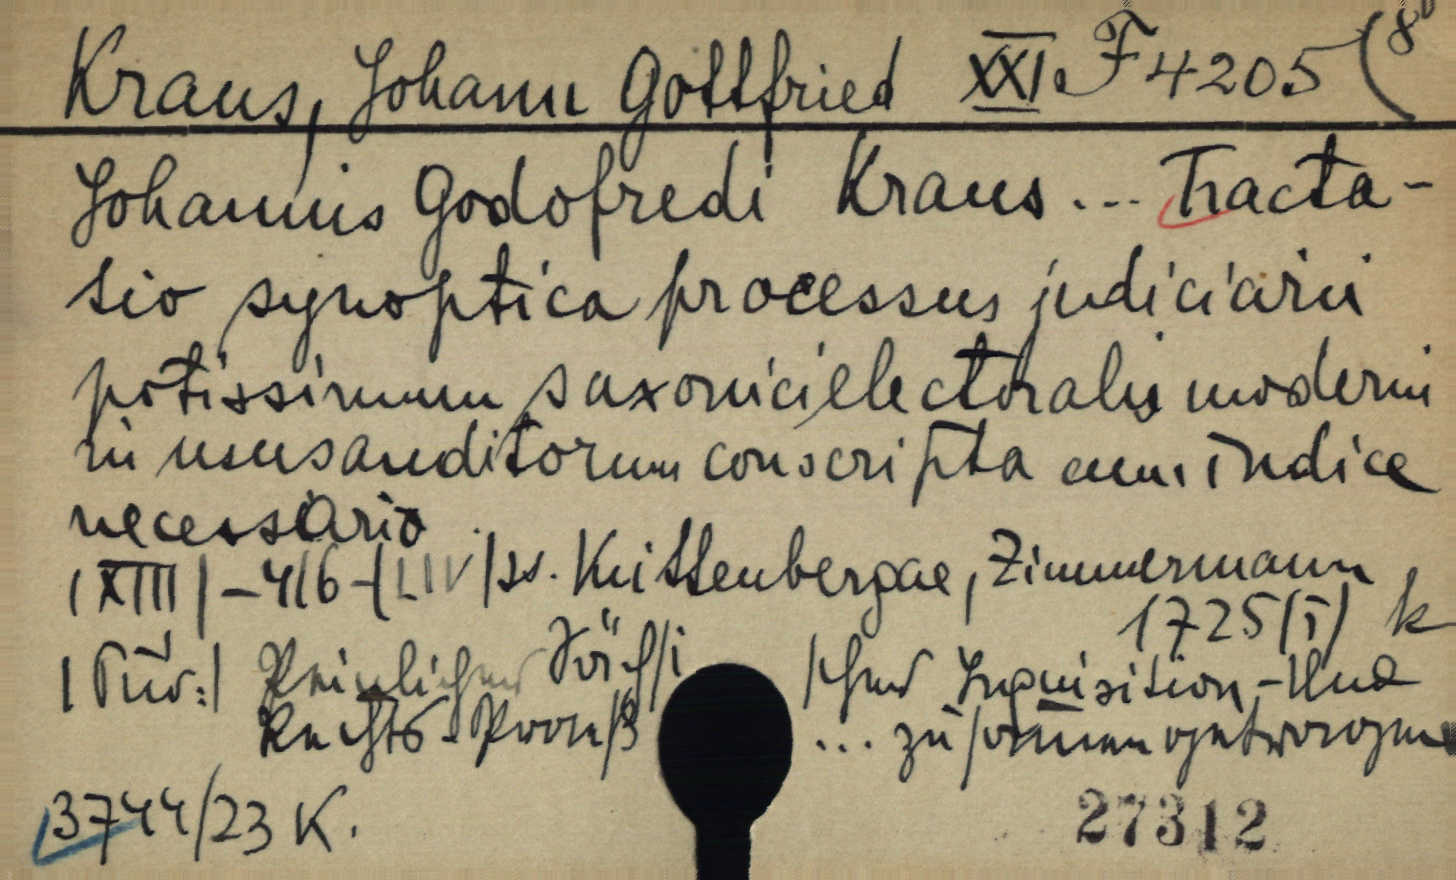 Kraus, Johann Gottfried XXI. F 4205 (8°
Johannis Godofredi Kraus ... Tracta-
tio synoptica processus judiciarii
potissimum saxonici electoralis moderni
in usus auditorum conscripta cum indice
necessario
|XIII|-416-|LIV| ss. Vittenbergae, Zimmermann
1725 (T) k
Peinlicher Säch/i /cher Inquisition-Und
Rechts-Proceß ... zusammengetragen
3744/23 K.
27312